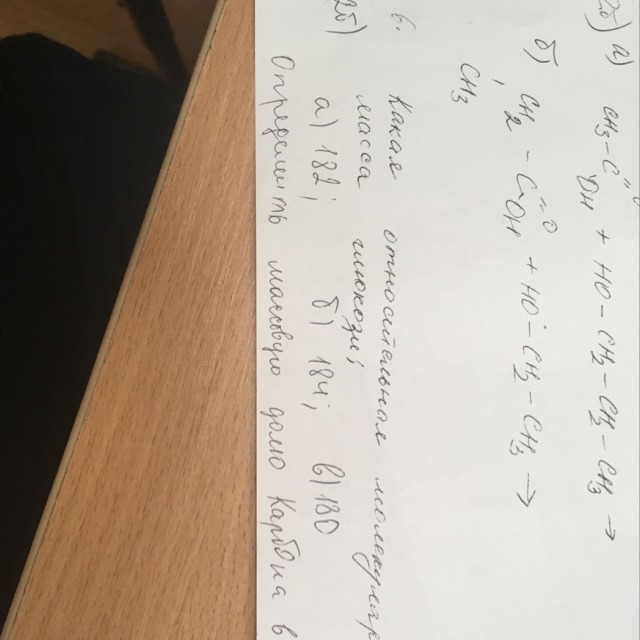 а) CH3 - C = O
OH + HO - CH2 - CH2 - CH3 →
б) CH2 - C = O
OH + HO - CH2 - CH3 →
CH3
6. Какая относительная
масса глюкозы;
а) 182; б) 184; в) 180
Определить массовую долю карбона в